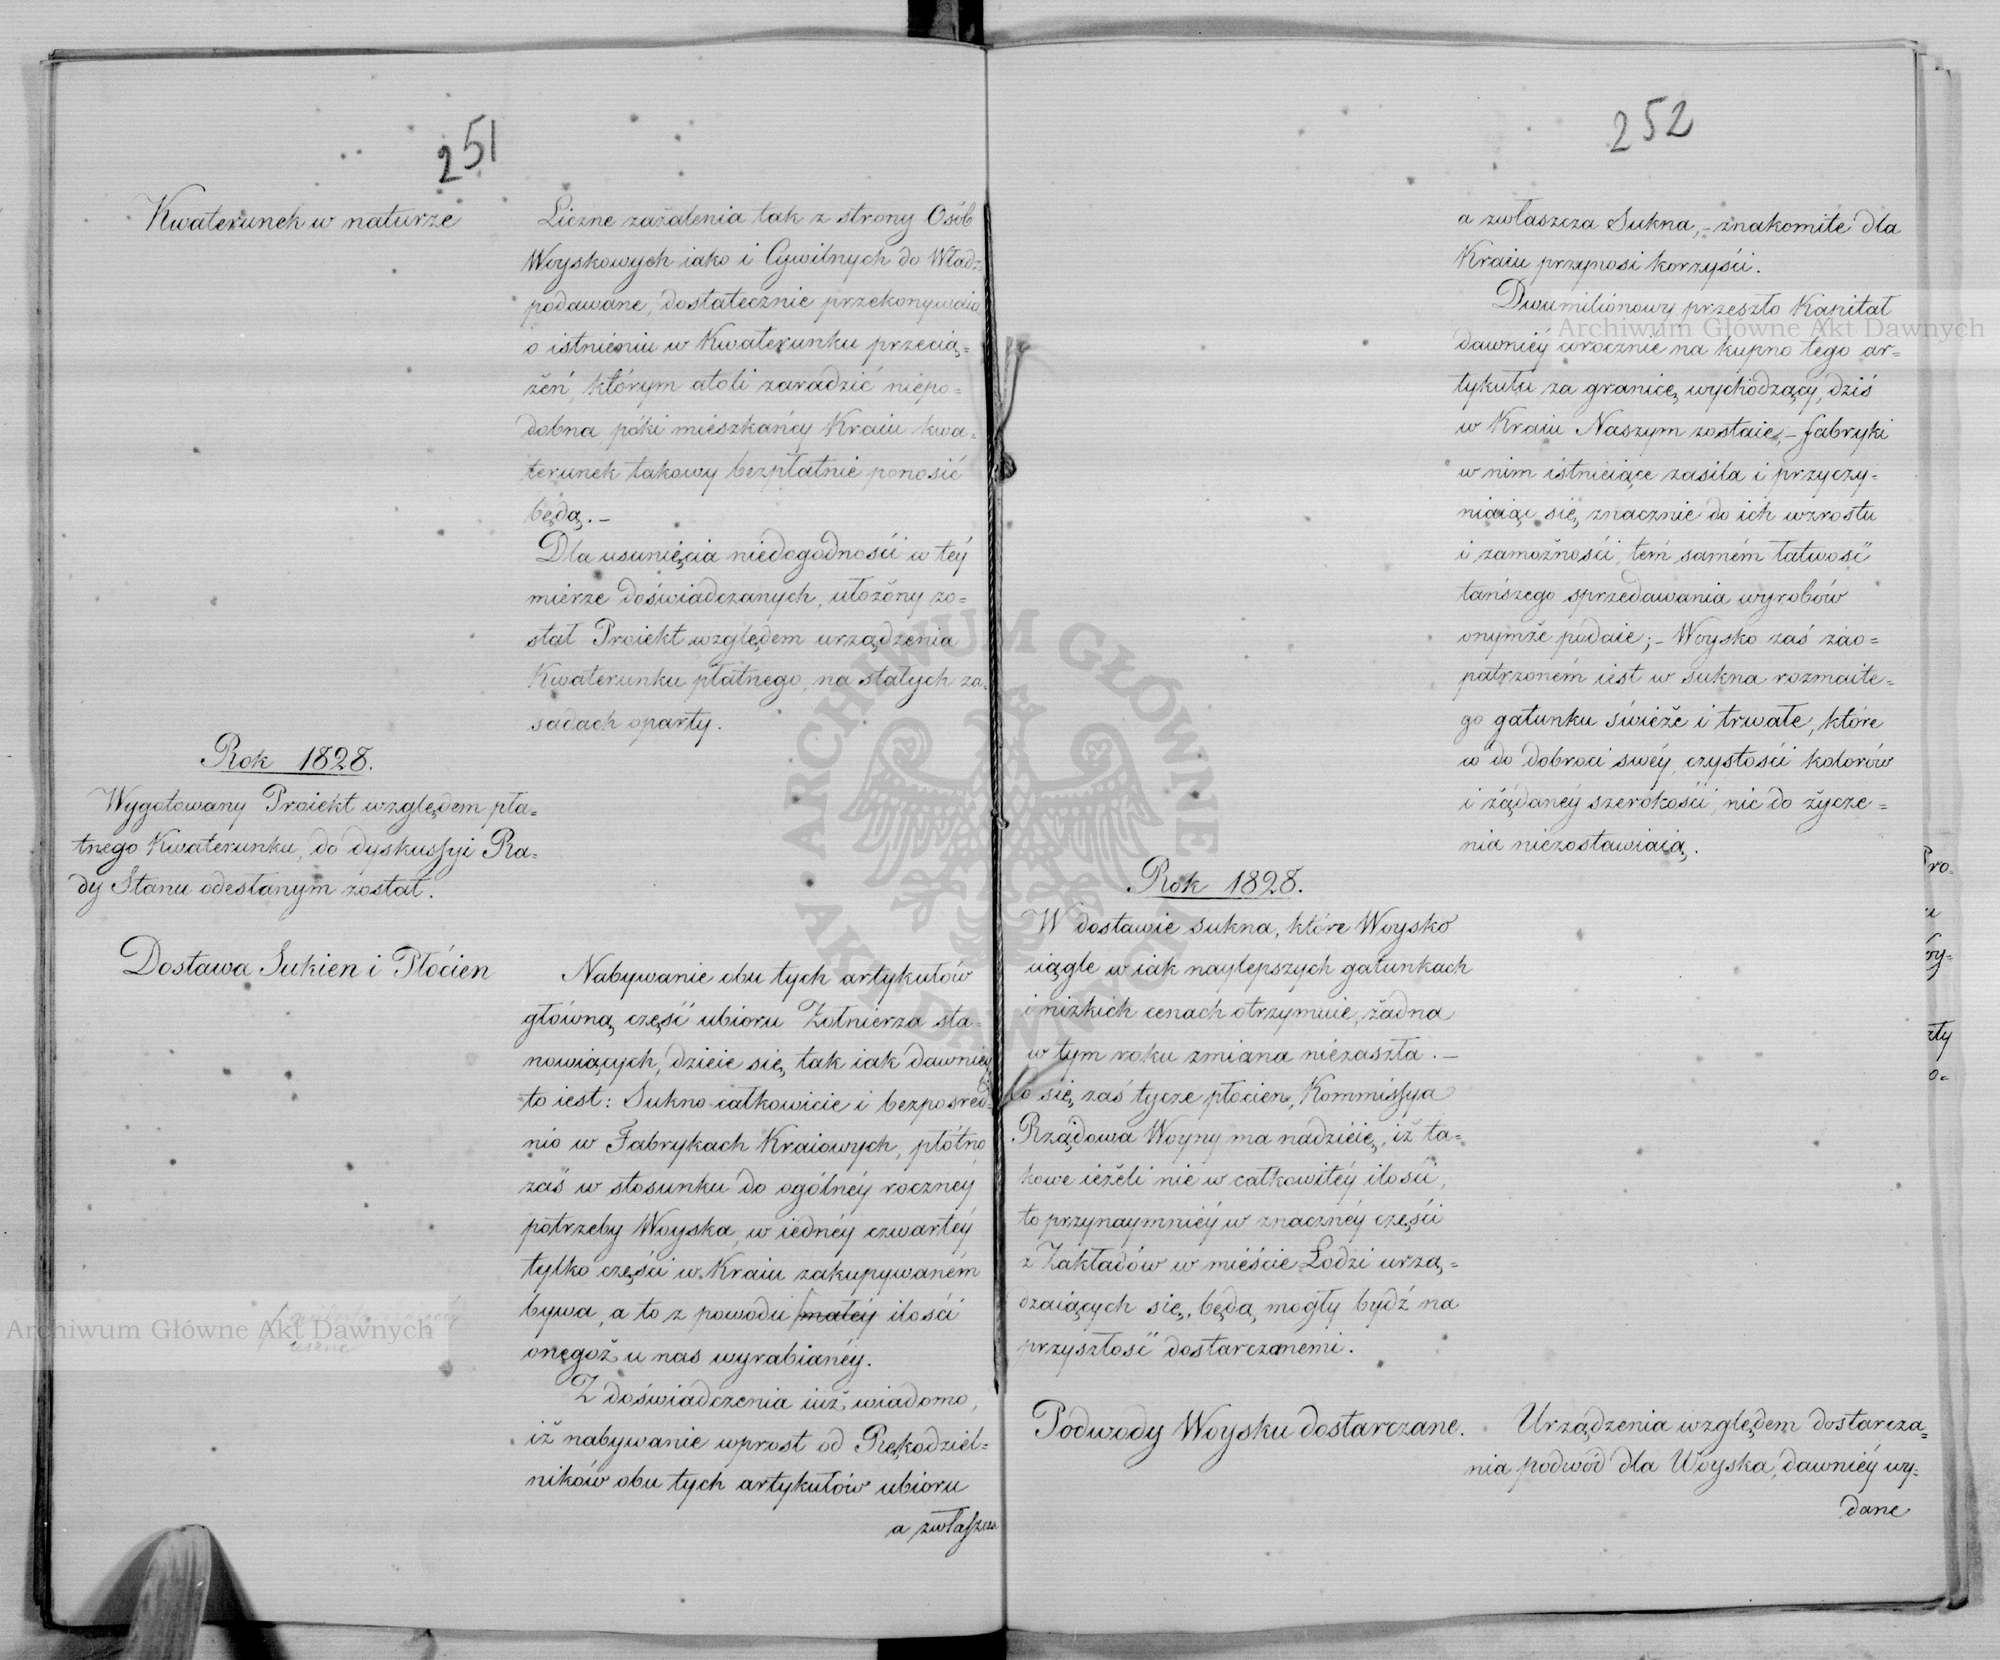 251
Kwaterunek w naturze
Liczne zażalenia tak z strony Osób
Woyskowych iako i Cywilnych do Władz
podawane, dostatecznie przekonywaią
o istnieniu w Kwaterunku przecią=
żeń, którym atoli zaradzić niepo=
dobna, póki mieszkańcy Kraiu kwa=
terunek takowy bezpłatnie ponosić
będą. –
Dla usunięcia niedogodności w téy
mierze doświadczanych, ułożóny zo=
stał Proiekt względem urządzenia
Kwaterunku płatnego, na stałych za=
sadach oparty.
Rok 1828.
Wygotowany Proiekt względem pła=
tnego Kwaterunku, do dyskussyi Ra=
dy Stanu odesłanym został.
Dostawa Sukien i Płócien
Nabywanie obu tych artykułów
główną część ubioru Żołnierza sta=
nowiących, dzieie się tak iak dawniéy
to iest: Sukno całkowicie i bezpośred=
nio w Fabrykach Kraiowych, płótno
zaś w stosunku do ogólnéy rocznéy
potrzeby Woyska, w iednéy czwartéy
tylko części w Kraiu zakupywaném
bywa, a to z powodu małéy ilości
onegoż u nas wyrabianéy.
Z doświadczenia iuż wiadomo,
iż nabywanie wprost od Rękodziel=
ników obu tych artykułów ubioru
a zwłaszcza
252
a zwłaszcza Sukna, – znakomite dla
Kraiu przynosi korzyści.
Dwumilionowy przeszło Kapitał
dawniéy corocznie na kupno tego ar=
tykułu za granicę wychodzący, dziś
w Kraiu Naszym zostaie, – fabryki
w nim istnieiące zasila i przyczy=
niaiąc się znacznie do ich wzrostu
i zamożności, tém samém łatwość
tańszego sprzedawania wyrobów
onymże podaie; – Woysko zaś zao=
patrzoném iest w sukna rozmaite=
go gatunku świéże i trwałe, które
co do dobroci swéy, czystości kolorów
i żądanéy szerokości, nic do życze=
nia niezostawiaią.
Rok 1828.
W dostawie sukna, które Woysko
ciągle w iak naylepszych gatunkach
i nizkich cenach otrzymuie, żadna
w tym roku zmiana niezaszła. –
Co się zaś tycze płócien, Kommissya
Rządowa Woyny ma nadzieię, iż ta=
kowe ieżeli nie w całkowitéy ilości,
to przynaymniéy w znacznéy części
z Zakładów w mieście Łodzi urzą=
dzaiących się, będą mogły bydź na
przyszłość dostarczonemi.
Podwody Woysku dostarczane.
Urządzenia względem dostarcza=
nia podwód dla Woyska, dawniéy wy=
dane
Archiwum Główne Akt Dawnych
Archiwum Główne Akt Dawnych
ARCHIWUM GŁÓWNE AKT DAWNYCH